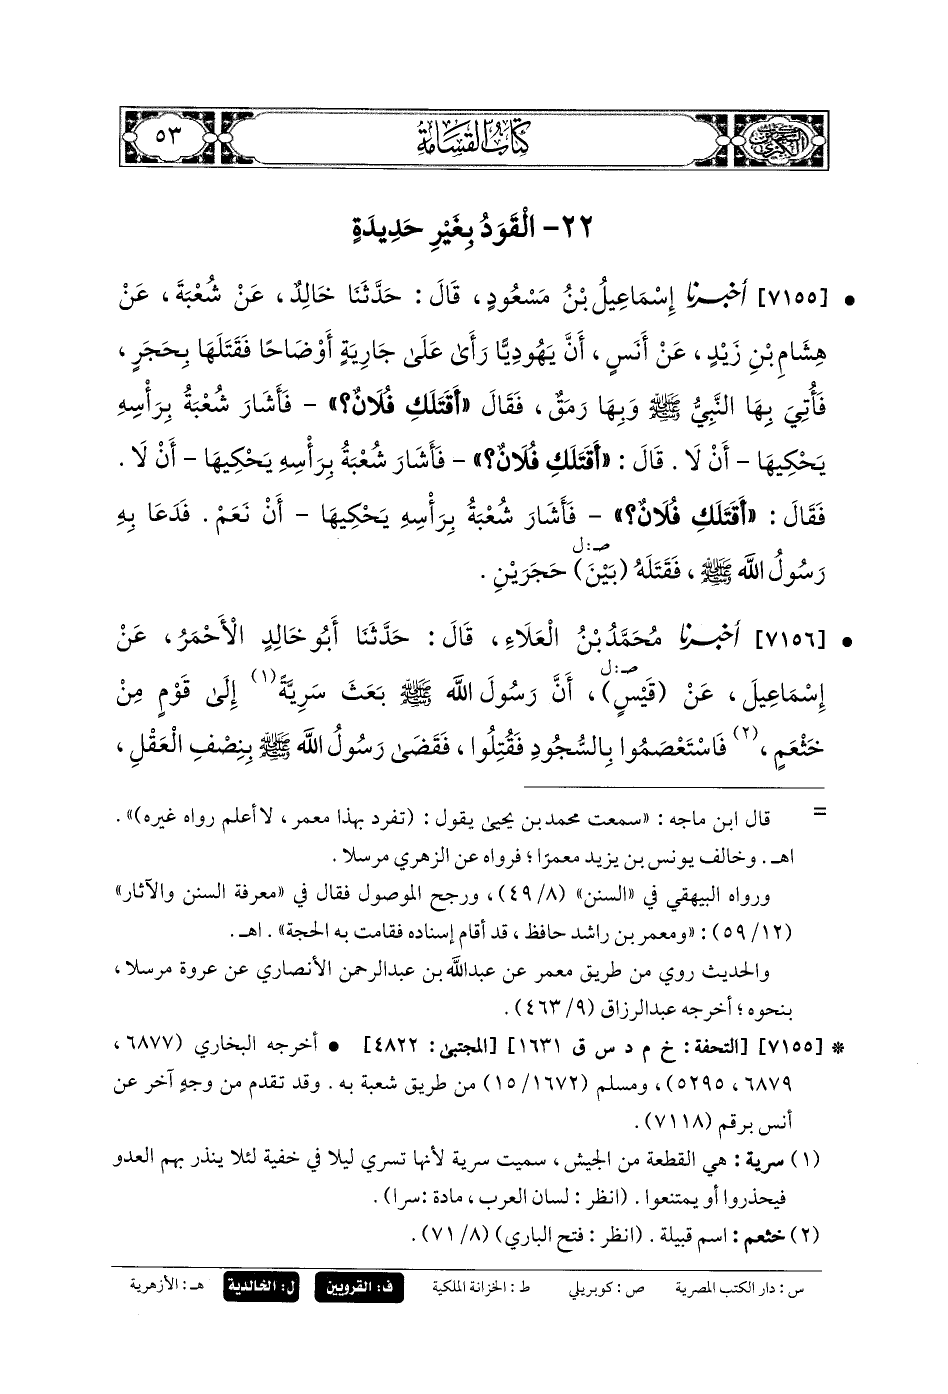 السنن الكبرى
كتاب القسامة
٥٣
٢٢- الْقَوَدُ بِغَيْرِ حَدِيدَةٍ
• [٧١٥٥] أخبرنا إِسْمَاعِيلُ بْنُ مَسْعُودٍ، قَالَ: حَدَّثَنَا خَالِدٌ، عَنْ شُعْبَةَ، عَنْ
هِشَامِ بْنِ زَيْدٍ، عَنْ أَنَسٍ، أَنَّ يَهُودِيًّا رَأَىٰ عَلَىٰ جَارِيَةٍ أَوْضَاحًا فَقَتَلَهَا بِحَجَرٍ،
فَأُتِيَ بِهَا النَّبِيُّ ﷺ وَبِهَا رَمَقٌ، فَقَالَ «أَقَتَلَكِ فُلَانٌ؟» - فَأَشَارَ شُعْبَةُ بِرَأْسِهِ
يَحْكِيهَا - أَنْ لَا. قَالَ: «أَقَتَلَكِ فُلَانٌ؟» - فَأَشَارَ شُعْبَةُ بِرَأْسِهِ يَحْكِيهَا - أَنْ لَا.
فَقَالَ: «أَقَتَلَكِ فُلَانٌ؟» - فَأَشَارَ شُعْبَةُ بِرَأْسِهِ يَحْكِيهَا - أَنْ نَعَمْ. فَدَعَا بِهِ
صـ:ل
رَسُولُ اللَّه ﷺ، فَقَتَلَهُ (بَيْنَ) حَجَرَيْنِ.
• [٧١٥٦] أخبرنا مُحَمَّدُ بْنُ الْعَلَاءِ، قَالَ: حَدَّثَنَا أَبُو خَالِدٍ الْأَحْمَرُ، عَنْ
صـ:ل
إِسْمَاعِيلَ، عَنْ (قَيْسٍ)، أَنَّ رَسُولَ اللَّه ﷺ بَعَثَ سَرِيَّةً(١) إِلَىٰ قَوْمٍ مِنْ
خَثْعَمٍ(٢)، فَاسْتَعْصَمُوا بِالسُّجُودِ فَقُتِلُوا، فَقَضَىٰ رَسُولُ اللَّه ﷺ بِنِصْفِ الْعَقْلِ،
= قال ابن ماجه: «سمعت محمد بن يحيىٰ يقول: (تفرد بهذا معمر، لا أعلم رواه غيره)».
اهـ. وخالف يونس بن يزيد معمرًا؛ فرواه عن الزهري مرسلا.
ورواه البيهقي في «السنن» (٨/ ٤٩)، ورجح الموصول فقال في «معرفة السنن والآثار»
(١٢/ ٥٩): «ومعمر بن راشد حافظ، قد أقام إسناده فقامت به الحجة». اهـ.
والحديث روي من طريق معمر عن عبداللَّه بن عبدالرحمن الأنصاري عن عروة مرسلا،
بنحوه؛ أخرجه عبدالرزاق (٩/ ٤٦٣).
* [٧١٥٥] [التحفة: خ م د س ق ١٦٣١] [المجتبىٰ: ٤٨٢٢] • أخرجه البخاري (٦٨٧٧،
٦٨٧٩، ٥٢٩٥)، ومسلم (١٦٧٢/ ١٥) من طريق شعبة به. وقد تقدم من وجهٍ آخر عن
أنس برقم (٧١١٨).
(١) سرية: هي القطعة من الجيش، سميت سرية لأنها تسري ليلا في خفية لئلا ينذر بهم العدو
فيحذروا أو يمتنعوا. (انظر: لسان العرب، مادة:سرا).
(٢) خثعم: اسم قبيلة. (انظر: فتح الباري) (٨/ ٧١).
س: دار الكتب المصرية ص: كوبريلي ط: الخزانة الملكية ف: القرويين ل: الخالدية هـ: الأزهرية